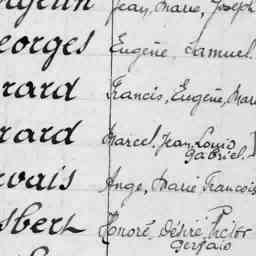 Jean, Marie, Joseph
eorges Eugène, Samuel.
rard Francis, Eugène, Mari
rard Marcel, Jean, Louis
Gabriel.
rvais Ange, Marie Francois
sbert Honoré, Désiré, Victor
Gervais